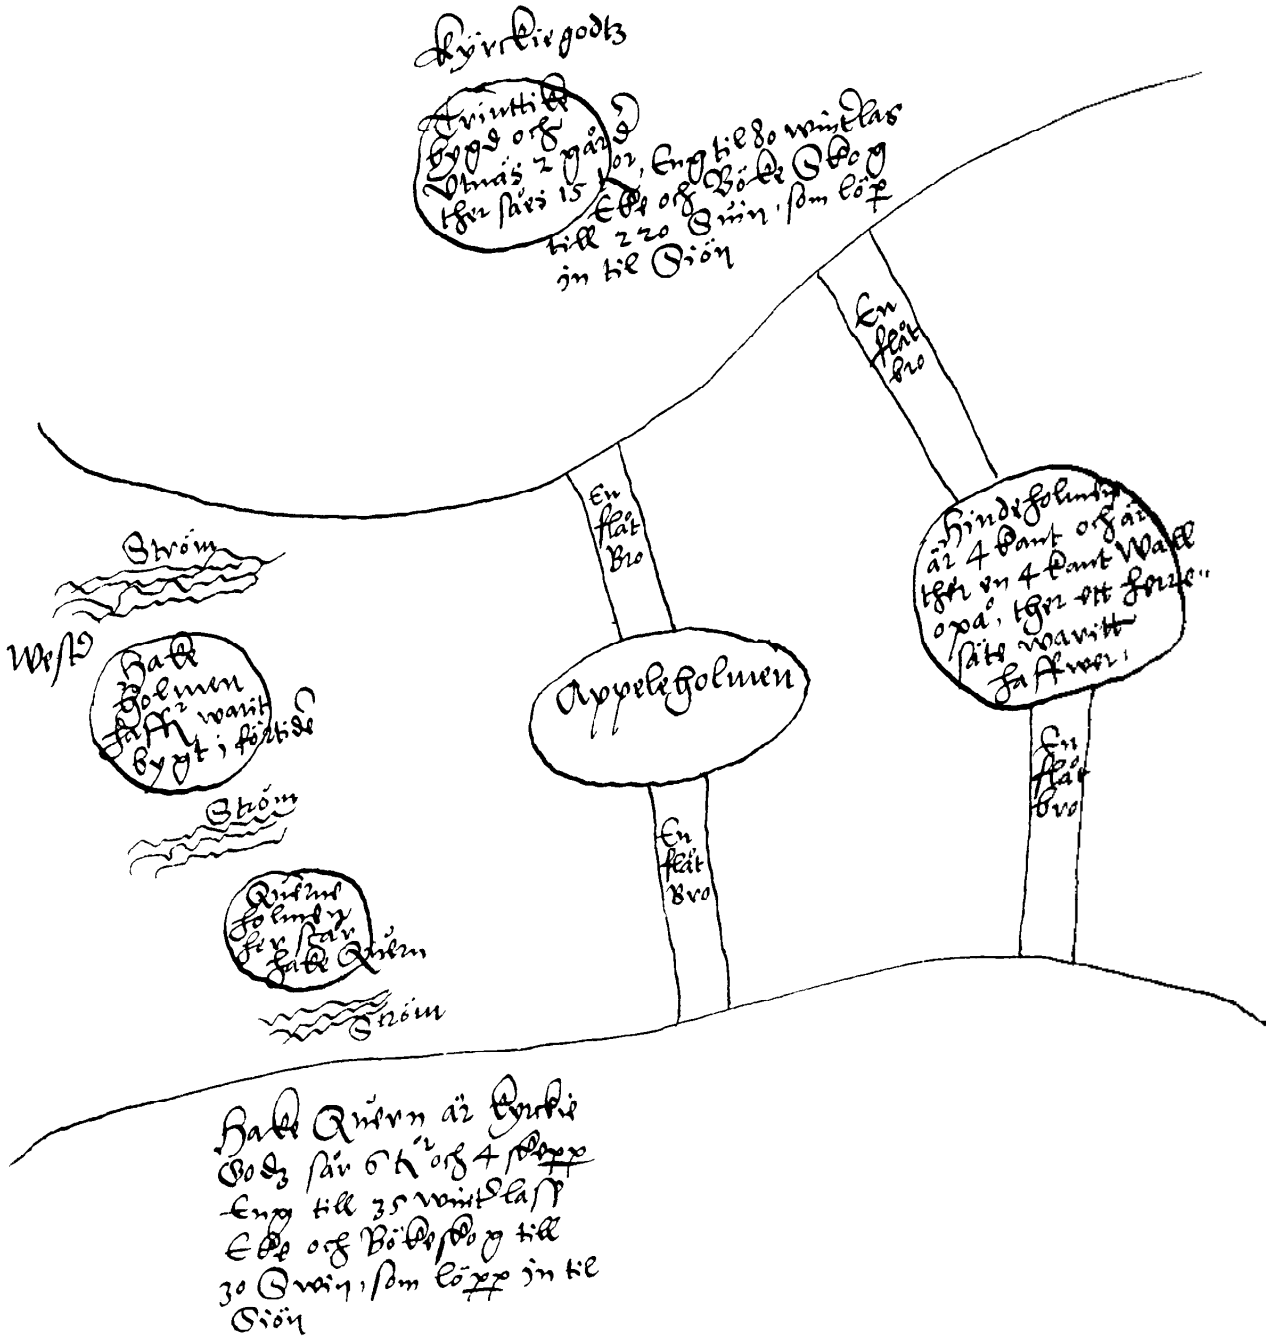 Kyrckiegodtz
bygd och
Utnäs 2 gård
ther såes 15 tor, Eng til 80 winterlas
Eke och Böke Skog
till 220 Swin, som löp
in til Siön
En
flåt
bro
En
flåt
Bro
Hindeholmen
är 4 kant och är
ther en 4 kant Wall
opå, ther ett herre-
säte waritt
haffwer,
Ström
West
Hake
holmen
haffr warit
bygt i förtiden
Appeleholmen
En
flåt
bro
Ström
En
flåt
Bro
Querne
holmen
her står
hake Quern
Ström
Hake Quern är Kyrckie
Godz sår 6 och 4 skepp
Eng till 35 winterlass
Eke och Bökeskog till
30 Swin, som löpp in til
Siön